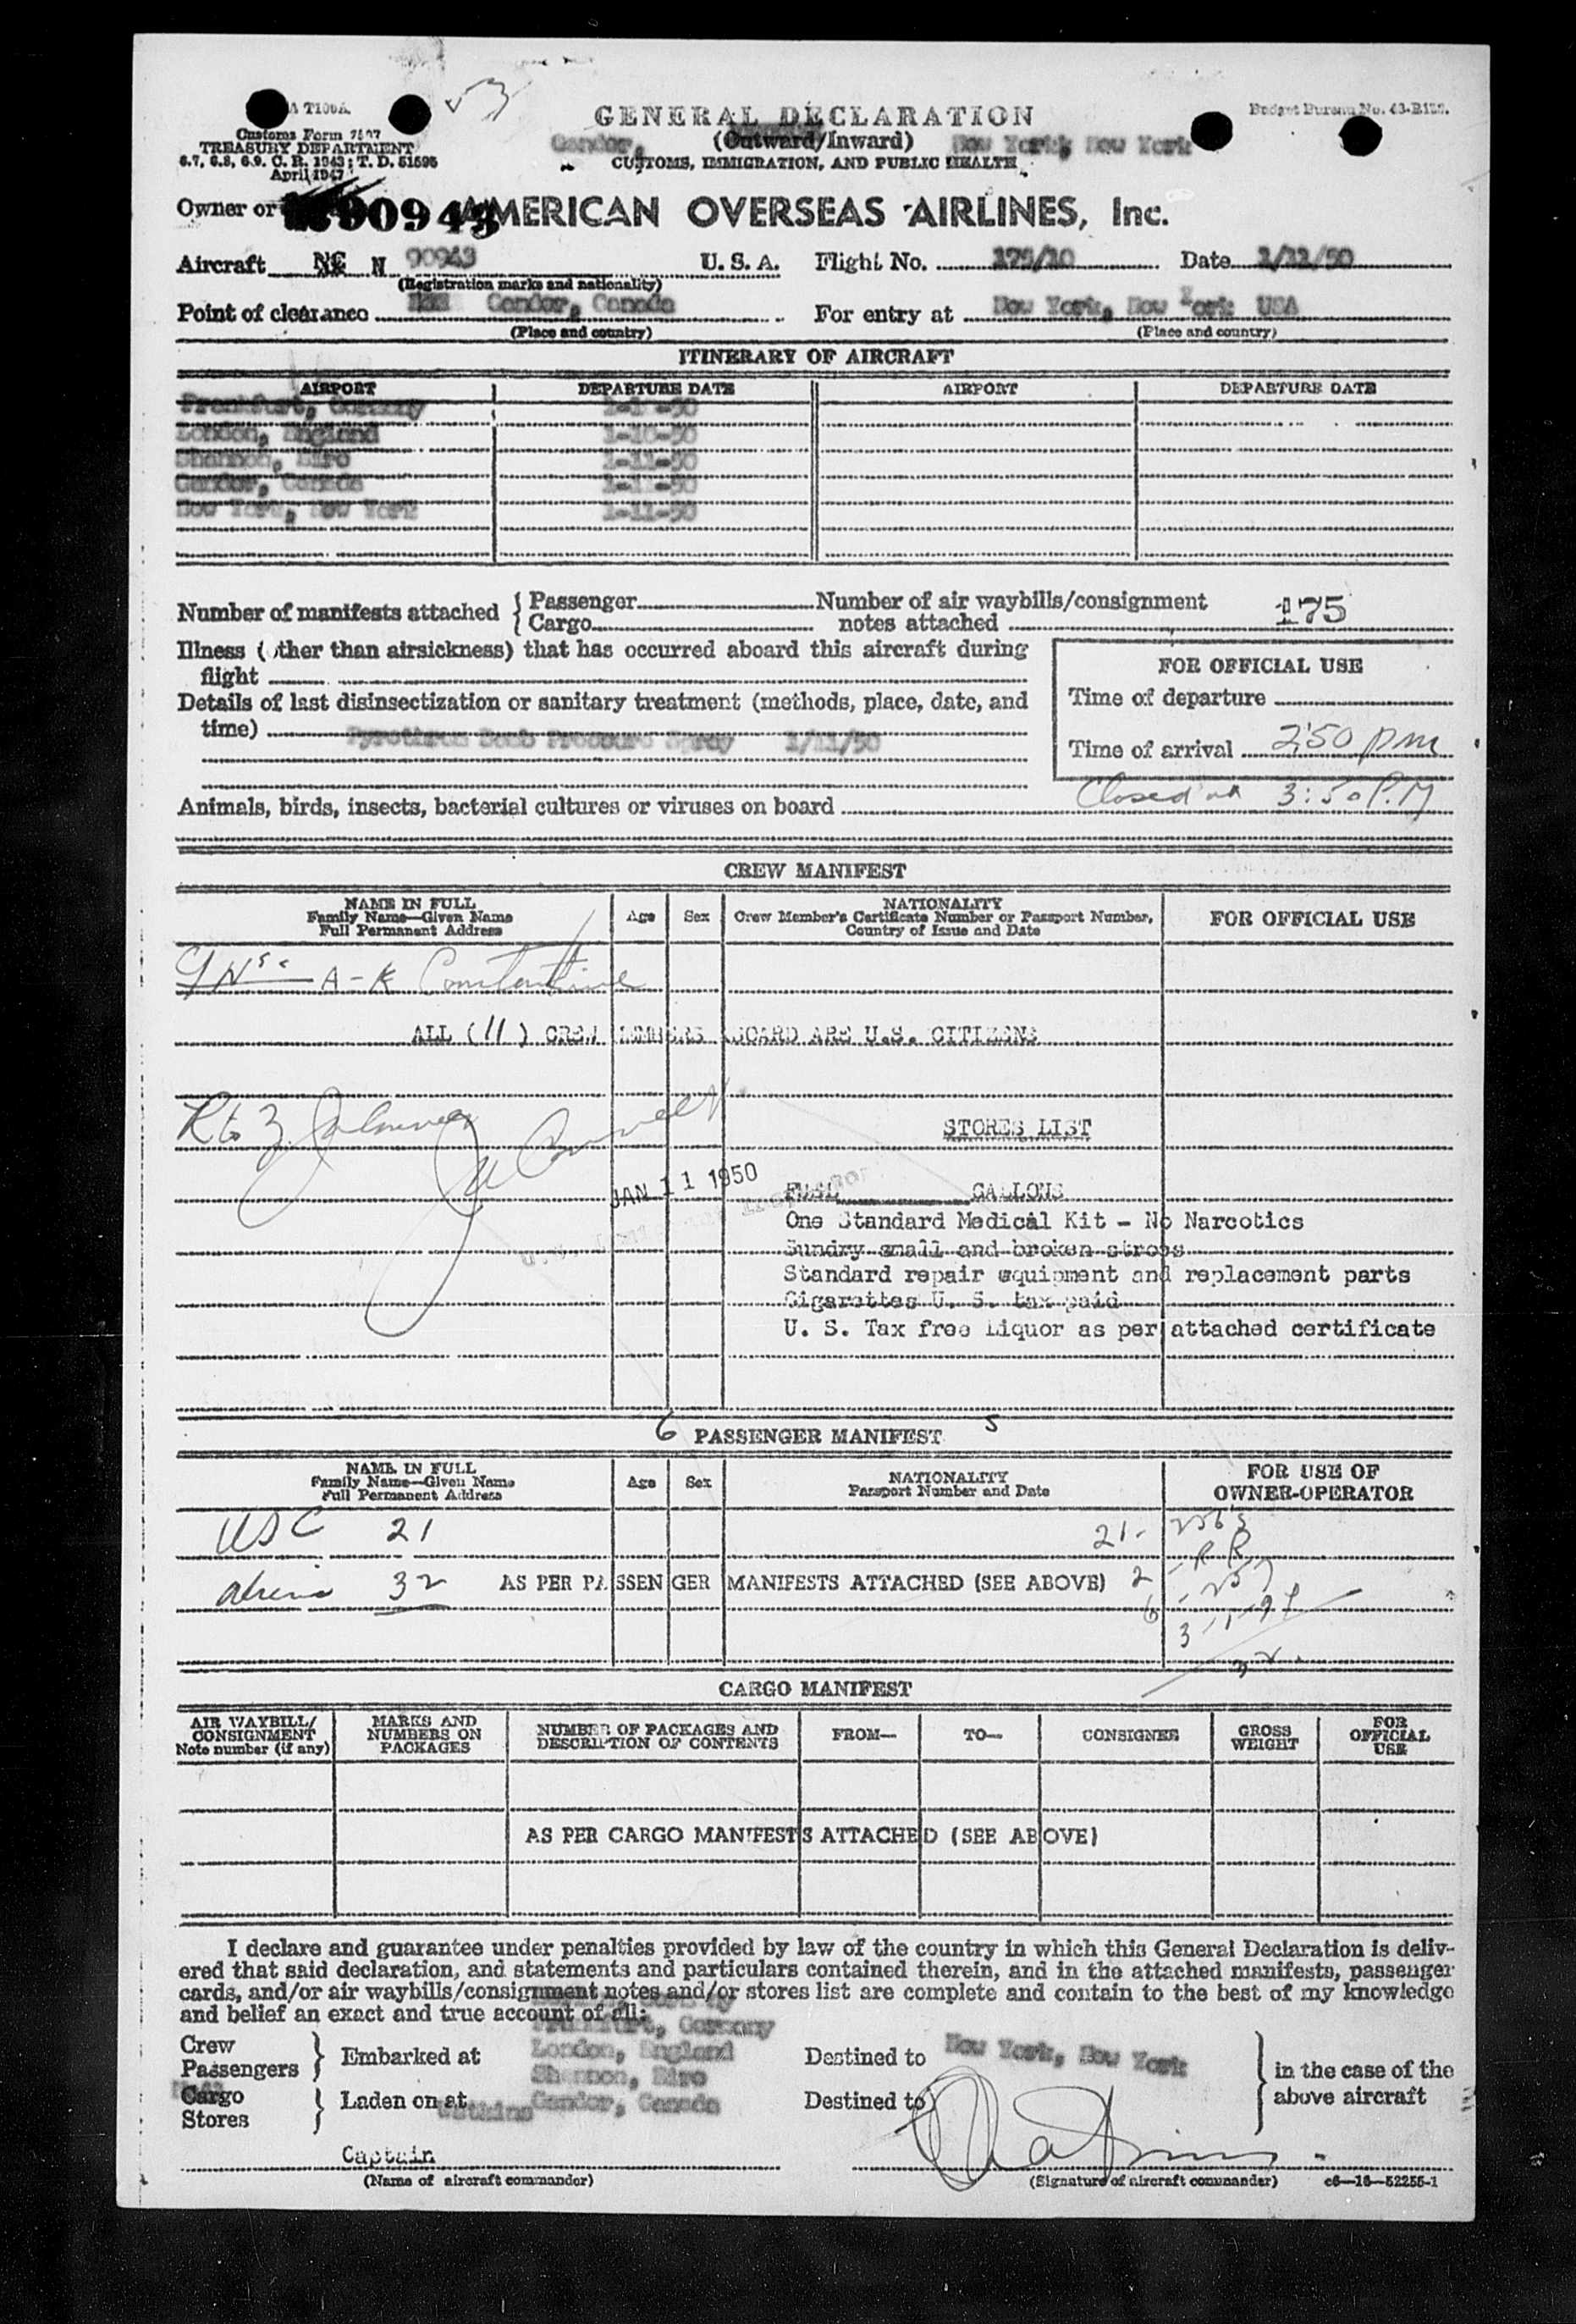 A T100A.
53
Customs Form 7507
TREASURY DEPARTMENT
6.7, 6.8, 6.9, C. R. 1943; T. D. 51595
April 1947
GENERAL DECLARATION
(Outward/Inward)
Gander, New York, New York
CUSTOMS, IMMIGRATION, AND PUBLIC HEALTH
Budget Bureau No. 43-R122.
Owner or 90943 AMERICAN OVERSEAS AIRLINES, Inc.
Aircraft NC N 90943 U. S. A. Flight No. 175/10 Date 1/11/50
(Registration marks and nationality)
Point of clearance Gander, Canada For entry at New York, New York USA
(Place and country) (Place and country)
ITINERARY OF AIRCRAFT
AIRPORT DEPARTURE DATE AIRPORT DEPARTURE DATE
Frankfurt, Germany 1-10-50
London, England 1-10-50
Shannon, Eire 1-11-50
Gander, Canada 1-11-50
New York, New York 1-11-50
Number of manifests attached { Passenger Number of air waybills/consignment
Cargo notes attached 175
Illness (other than airsickness) that has occurred aboard this aircraft during
flight
FOR OFFICIAL USE
Details of last disinsectization or sanitary treatment (methods, place, date, and
time) Pyrethrum Bomb Pressure Spray 1/11/50
Time of departure
Time of arrival 2:50 pm
Closed at 3:50 P.M
Animals, birds, insects, bacterial cultures or viruses on board
CREW MANIFEST
NAME IN FULL
Family Name—Given Name
Full Permanent Address
Age Sex
NATIONALITY
Crew Member's Certificate Number or Passport Number,
Country of Issue and Date
FOR OFFICIAL USE
A-K Constantine
ALL (11) CREW MEMBERS ABOARD ARE U.S. CITIZENS
STORES LIST
JAN 11 1950
FUEL GALLONS
One Standard Medical Kit - No Narcotics
Sundry small and broken stross
Standard repair equipment and replacement parts
Cigarettes U. S. tax paid
U. S. Tax free Liquor as per attached certificate
6 PASSENGER MANIFEST 5
NAME IN FULL
Family Name—Given Name
Full Permanent Address
Age Sex
NATIONALITY
Passport Number and Date
FOR USE OF
OWNER-OPERATOR
USC 21
21- 256's
- RR
32 AS PER PASSENGER MANIFESTS ATTACHED (SEE ABOVE) 2 - 257
6
32.
CARGO MANIFEST
AIR WAYBILL/
CONSIGNMENT
Note number (if any)
MARKS AND
NUMBERS ON
PACKAGES
NUMBER OF PACKAGES AND
DESCRIPTION OF CONTENTS
FROM— TO— CONSIGNEE
GROSS
WEIGHT
FOR
OFFICIAL
USE
AS PER CARGO MANIFESTS ATTACHED (SEE ABOVE)
I declare and guarantee under penalties provided by law of the country in which this General Declaration is deliv-
ered that said declaration, and statements and particulars contained therein, and in the attached manifests, passenger
cards, and/or air waybills/consignment notes and/or stores list are complete and contain to the best of my knowledge
and belief an exact and true account of all:
Frankfurt, Germany
Crew
Passengers } Embarked at London, England Destined to New York, New York } in the case of the
Shannon, Eire
Cargo
Stores } Laden on at Gander, Canada Destined to above aircraft
Watkins
Captain
(Name of aircraft commander) (Signature of aircraft commander) c6—16—52255-1